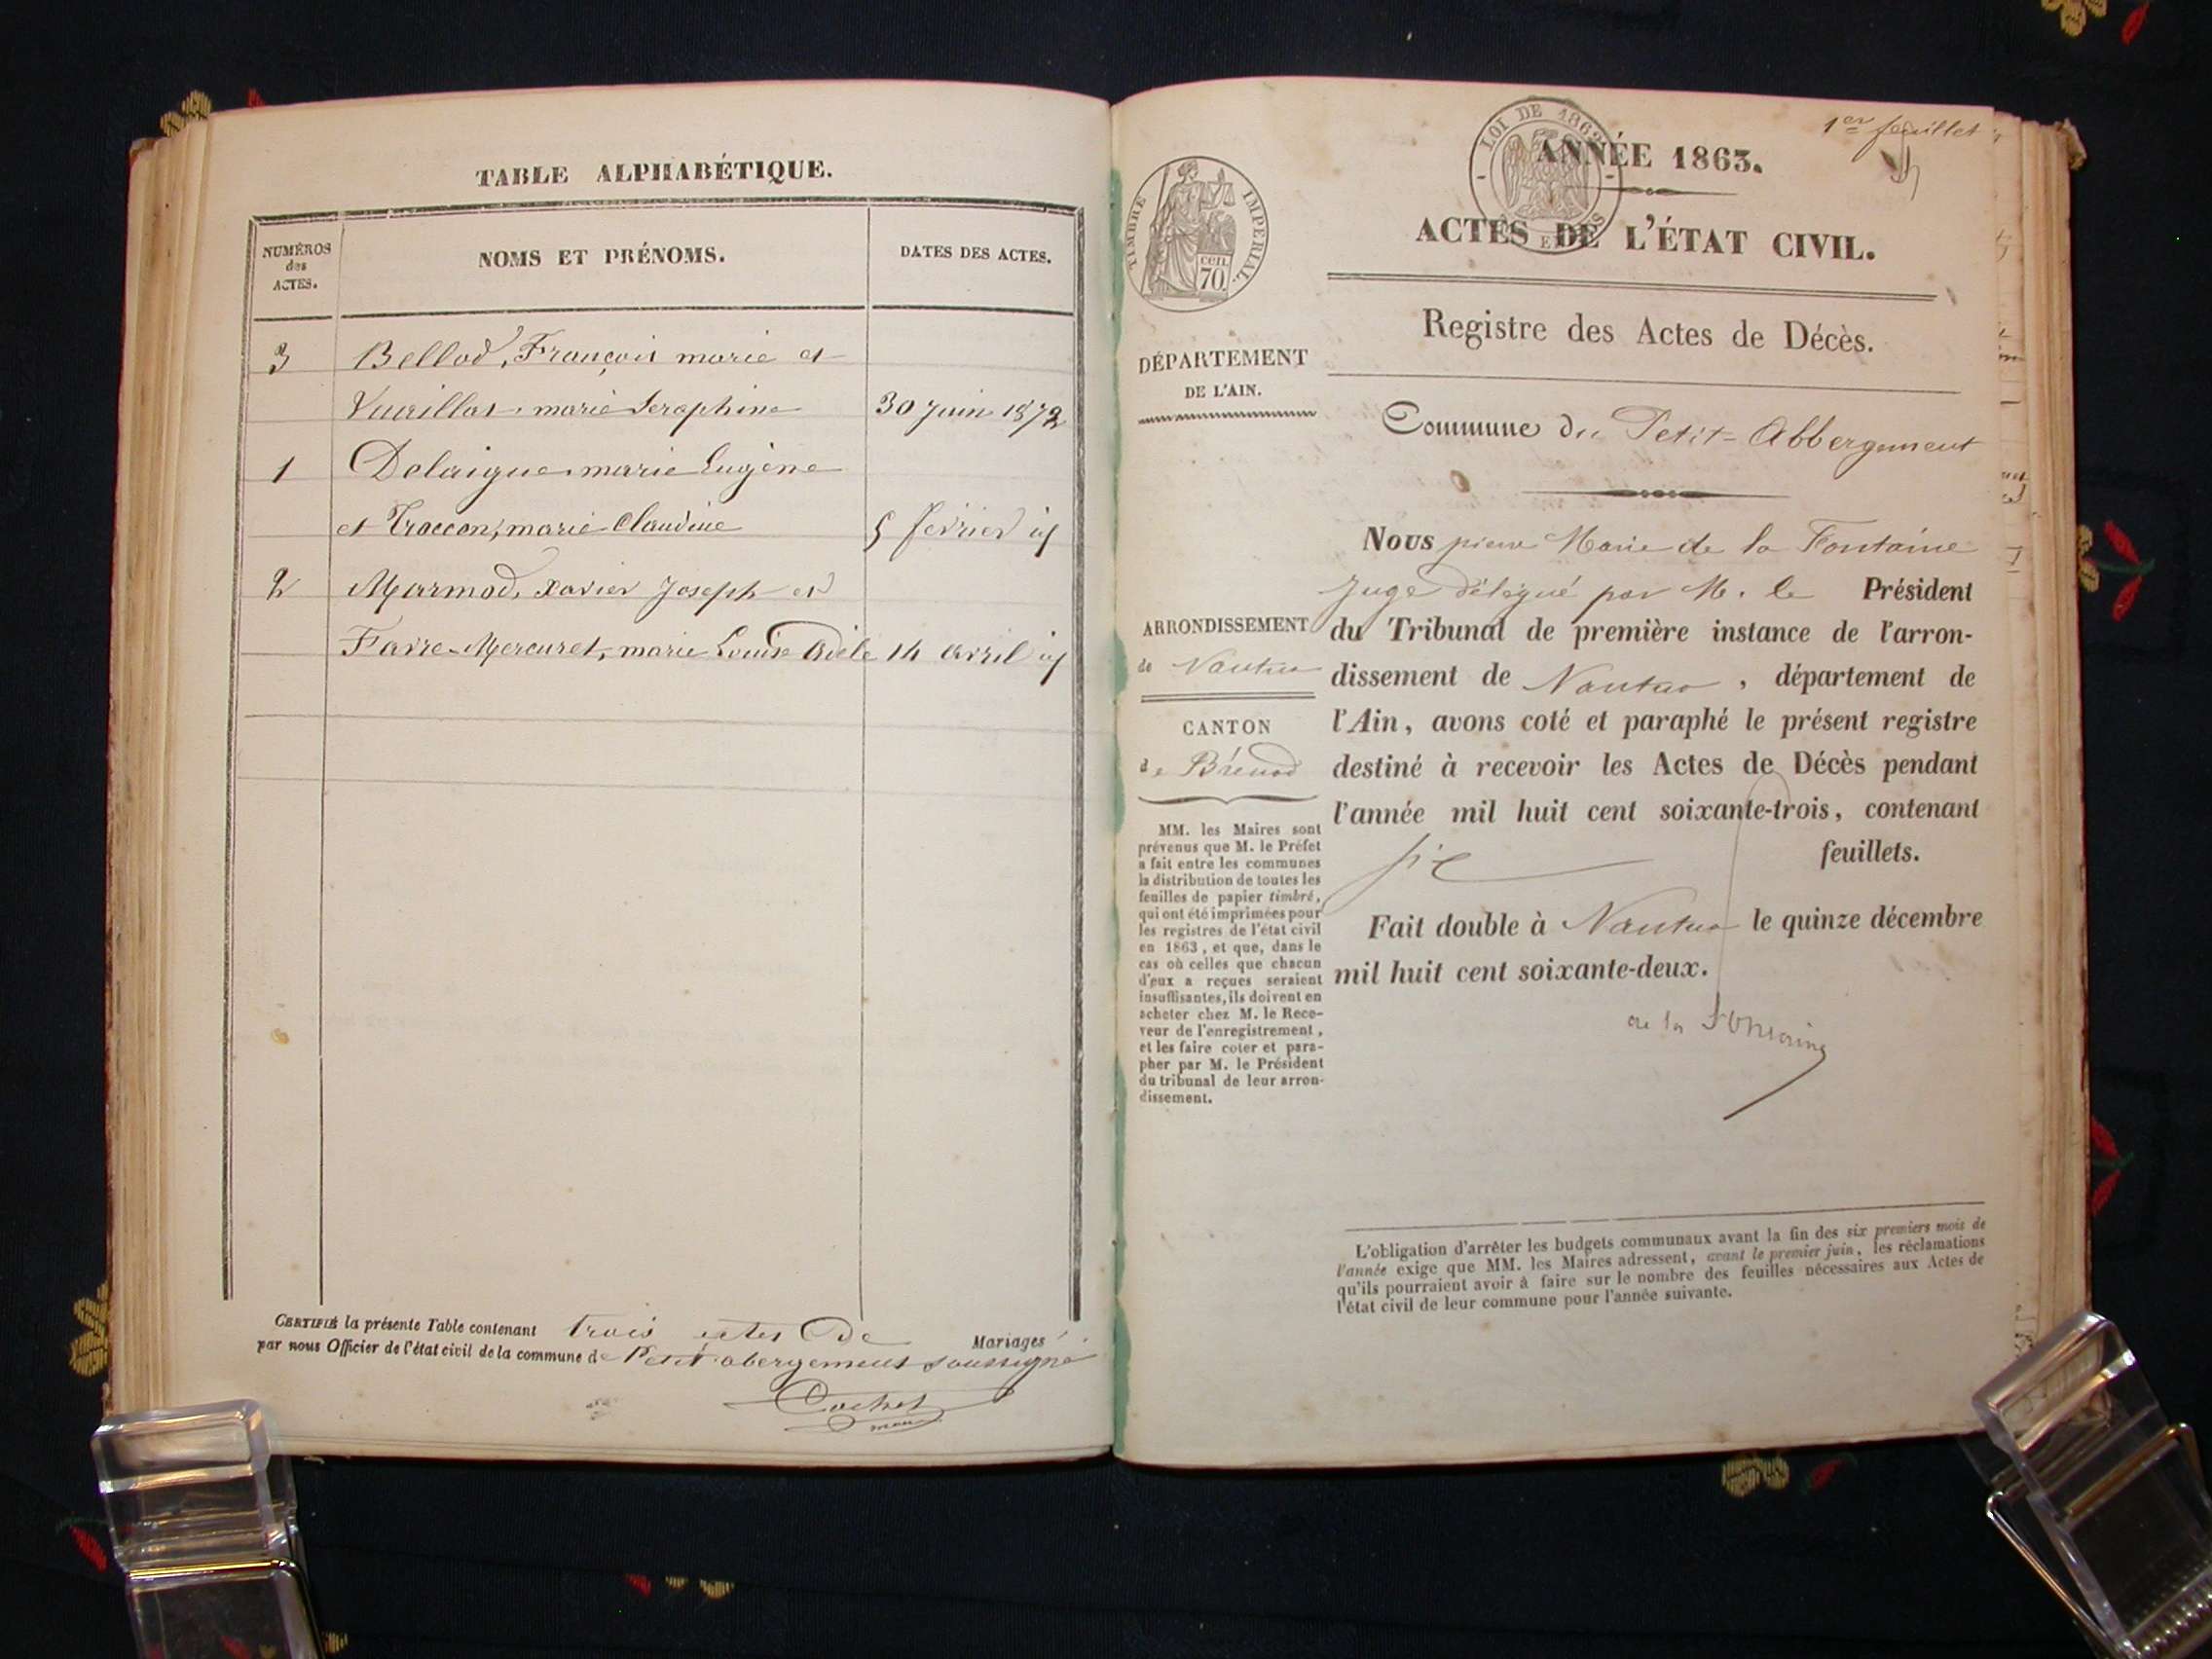 TABLE ALPHABÉTIQUE.
NUMÉROS
des
ACTES.
NOMS ET PRÉNOMS.
DATES DES ACTES.
3 Bellod, François marie et
Vuaillat marie Seraphine 30 Juin 1872
1 Delaigue marie Eugène
et Troccon, marie Claudine 5 février id
2 Marmod, Xavier Joseph et
Favre-Mercuret, marie Louise Adèle 14 avril id
CERTIFIÉ la présente Table contenant trois actes De Mariages
par nous Officier de l'état civil de la commune de Petit abergement soussigné
Cochet
maire
1er feuillet
LOI DE 1862
ANNÉE 1863.
TIMBRE IMPERIAL.
cen.
70.
ACTES DE L'ÉTAT CIVIL.
Registre des Actes de Décès.
DÉPARTEMENT
DE L'AIN.
Commune du Petit-Abbergement
ARRONDISSEMENT
de Nantua
CANTON
de Brénod
MM. les Maires sont
prévenus que M. le Préfet
a fait entre les communes
la distribution de toutes les
feuilles de papier timbré,
qui ont été imprimées pour
les registres de l'état civil
en 1863, et que, dans le
cas où celles que chacun
d'eux a reçues seraient
insuffisantes, ils doivent en
acheter chez M. le Rece-
veur de l'enregistrement,
et les faire coter et para-
pher par M. le Président
du tribunal de leur arron-
dissement.
Nous pierre Marie de la Fontaine
juge délégué par M. le Président
du Tribunal de première instance de l'arron-
dissement de Nantua, département de
l'Ain, avons coté et paraphé le présent registre
destiné à recevoir les Actes de Décès pendant
l'année mil huit cent soixante-trois, contenant
six feuillets.
Fait double à Nantua le quinze décembre
mil huit cent soixante-deux.
de la Fontaine
L'obligation d'arrêter les budgets communaux avant la fin des six premiers mois de
l'année exige que MM. les Maires adressent, avant le premier juin, les réclamations
qu'ils pourraient avoir à faire sur le nombre des feuilles nécessaires aux Actes de
l'état civil de leur commune pour l'année suivante.